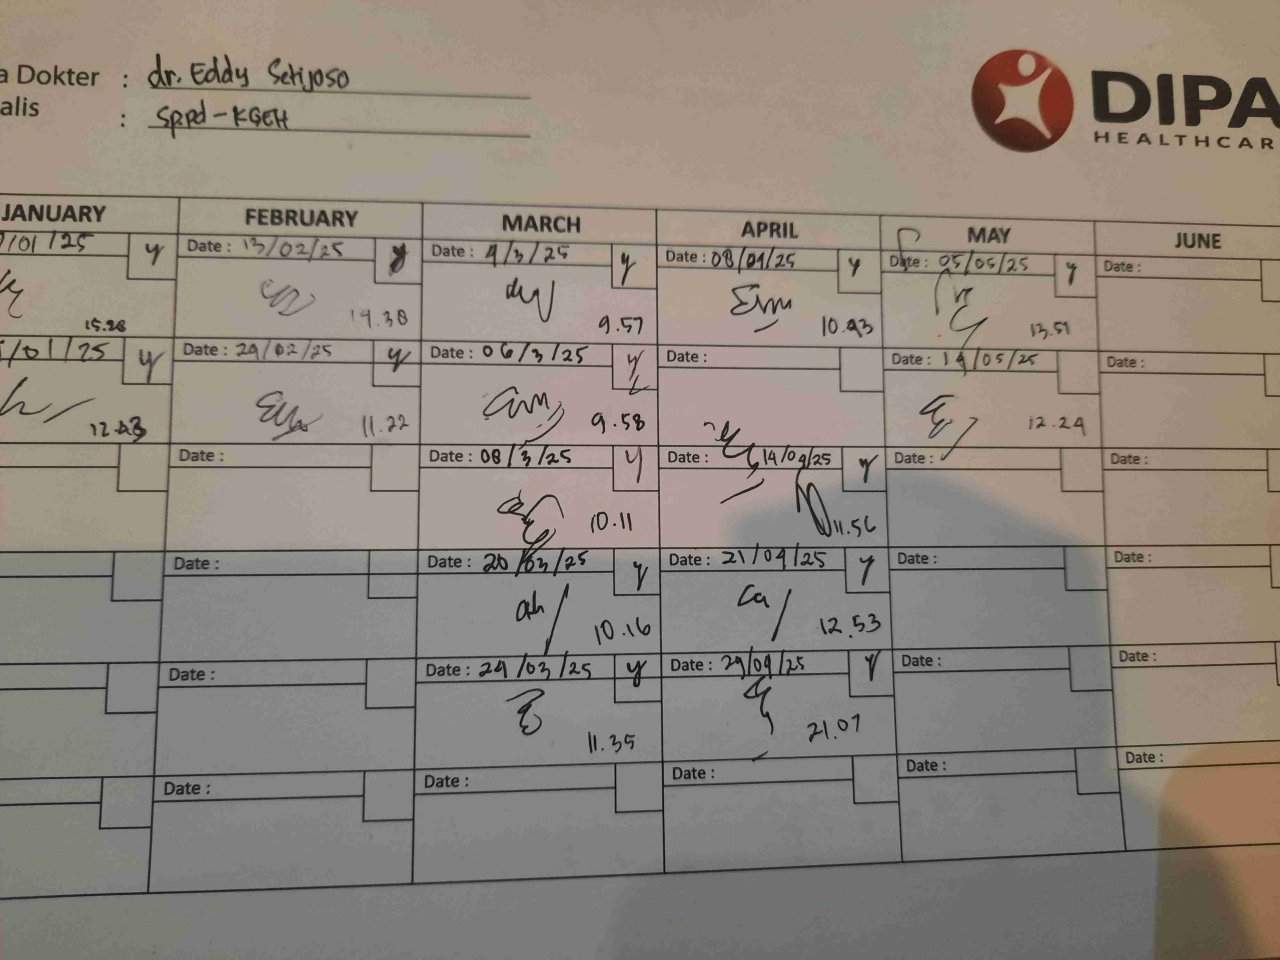 a Dokter : dr. Eddy Setijoso
alis : Sppd-KGEH
DIPA
HEALTHCAR
JANUARY FEBRUARY MARCH APRIL MAY JUNE
/01/25 y Date : 13/02/25 y Date : 4/3/25 y Date : 08/04/25 y Date : 05/05/25 y Date :
15.28 14.38 9.57 10.43 13.51
/01/25 y Date : 24/02/25 y Date : 06/3/25 y Date : Date : 14/05/25 Date :
12.43 11.22 9.58 12.24
Date : Date : 08/3/25 y Date : 14/04/25 y Date : Date :
10.11 11.56
Date : Date : 20/03/25 y Date : 21/04/25 y Date : Date :
10.16 12.53
Date : Date : 24/03/25 y Date : 29/04/25 y Date : Date :
11.35 21.07
Date : Date : Date : Date : Date :